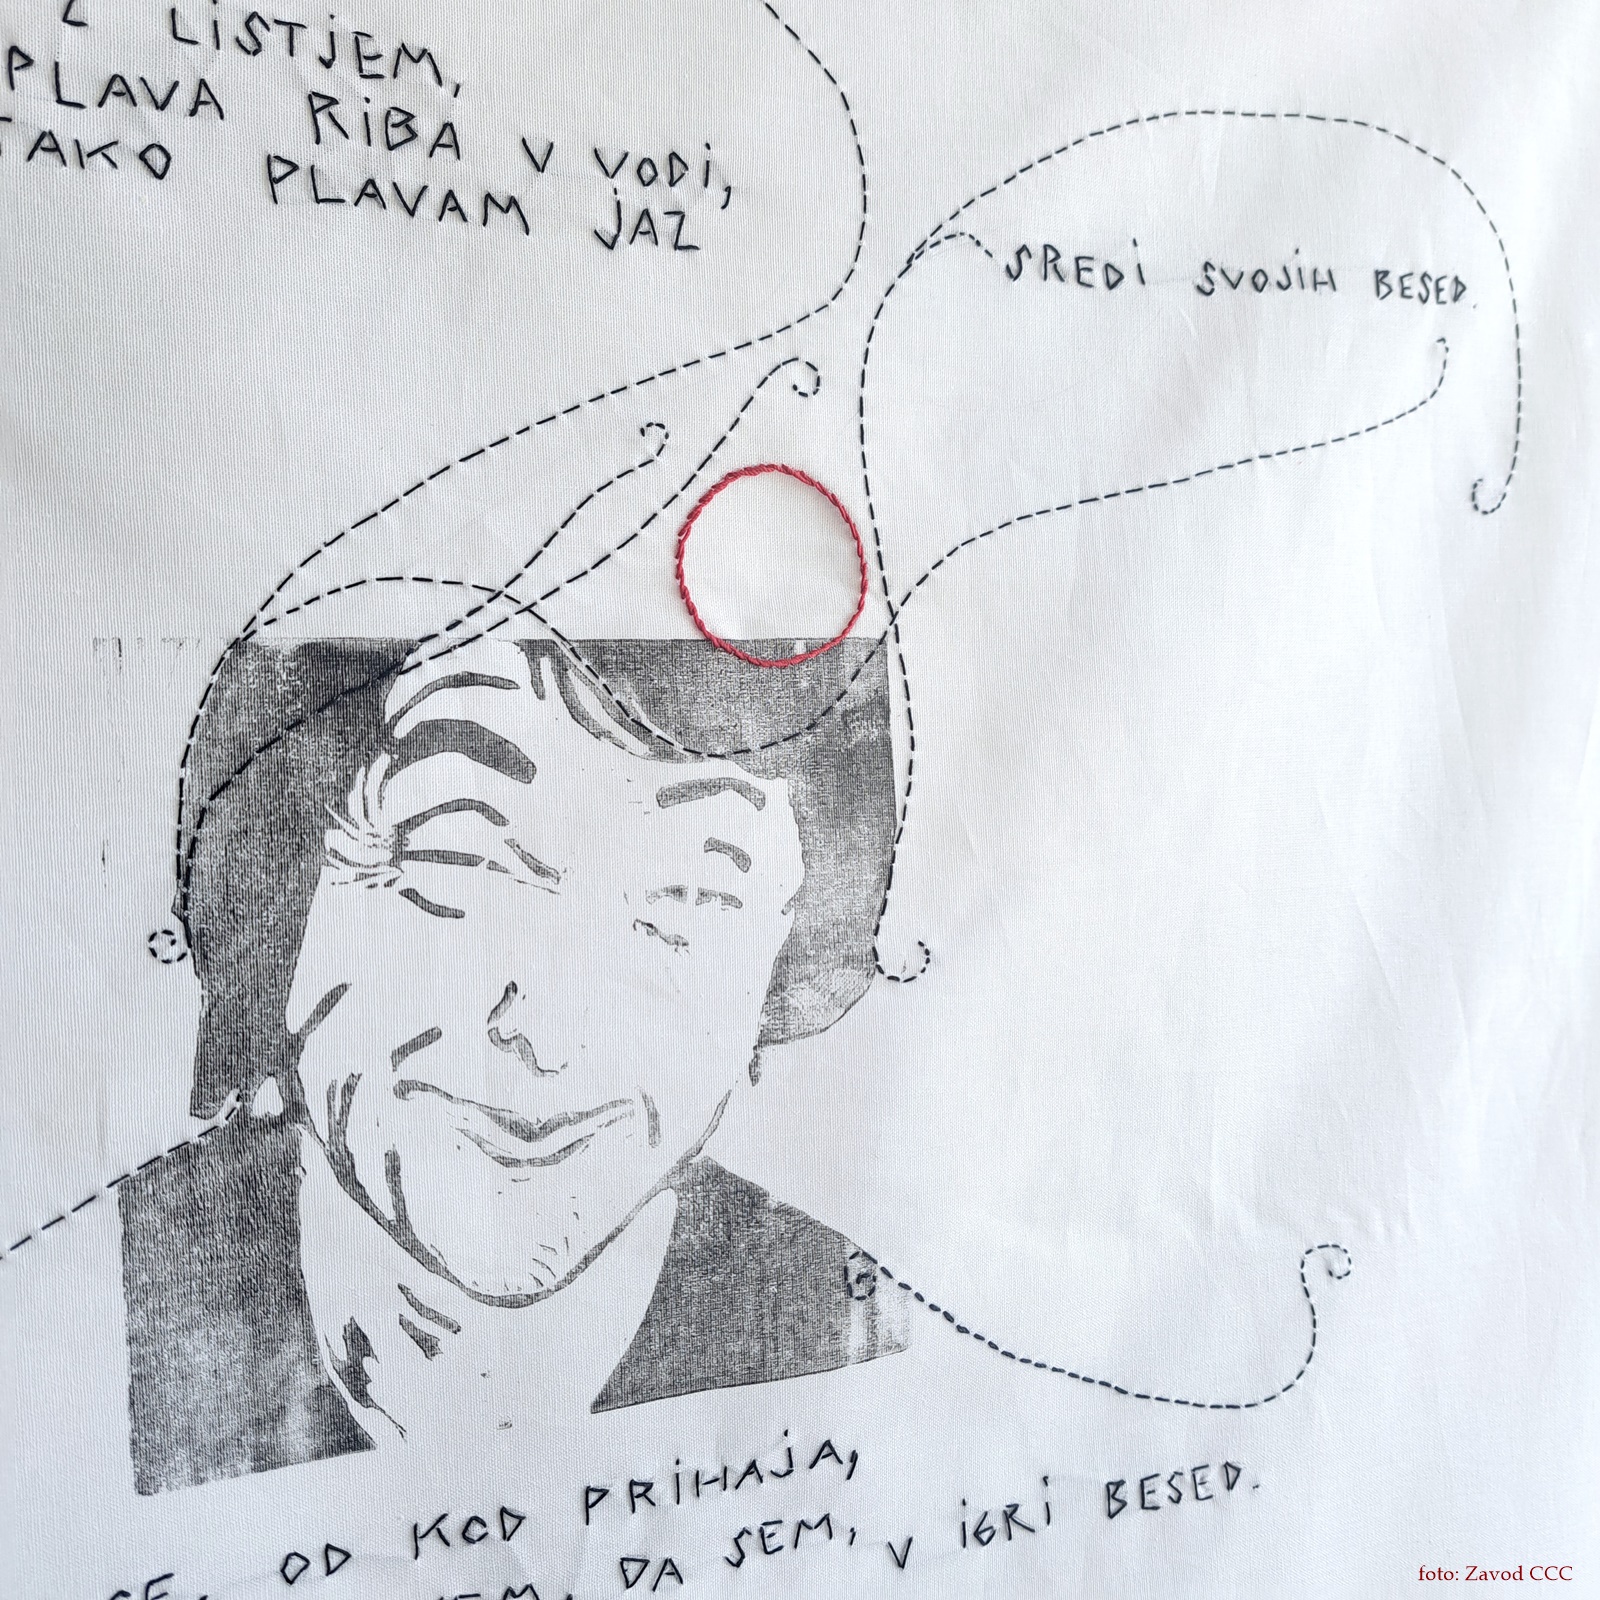 Z LISTJEM,
PLAVA RIBA V VODI,
TAKO PLAVAM JAZ
SREDI SVOJIH BESED.
OD KOD PRIHAJA,
DA SEM, V IGRI BESED.
foto: Zavod CCC